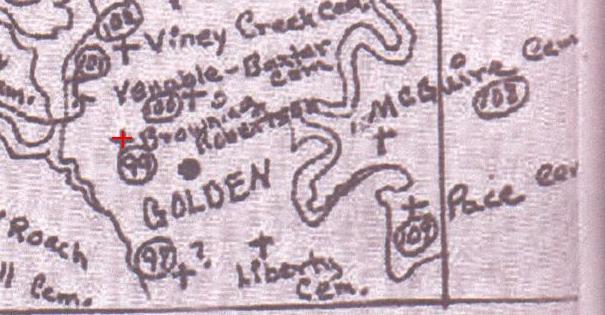 102
Viney Creek Cem.
101
Venable-Baxter
Cem.
100
Browning
Robertson
99
McGuire Cem
103
GOLDEN
Pace Cem
Roach
98 ?
Liberty
Cem.
ll Cem.